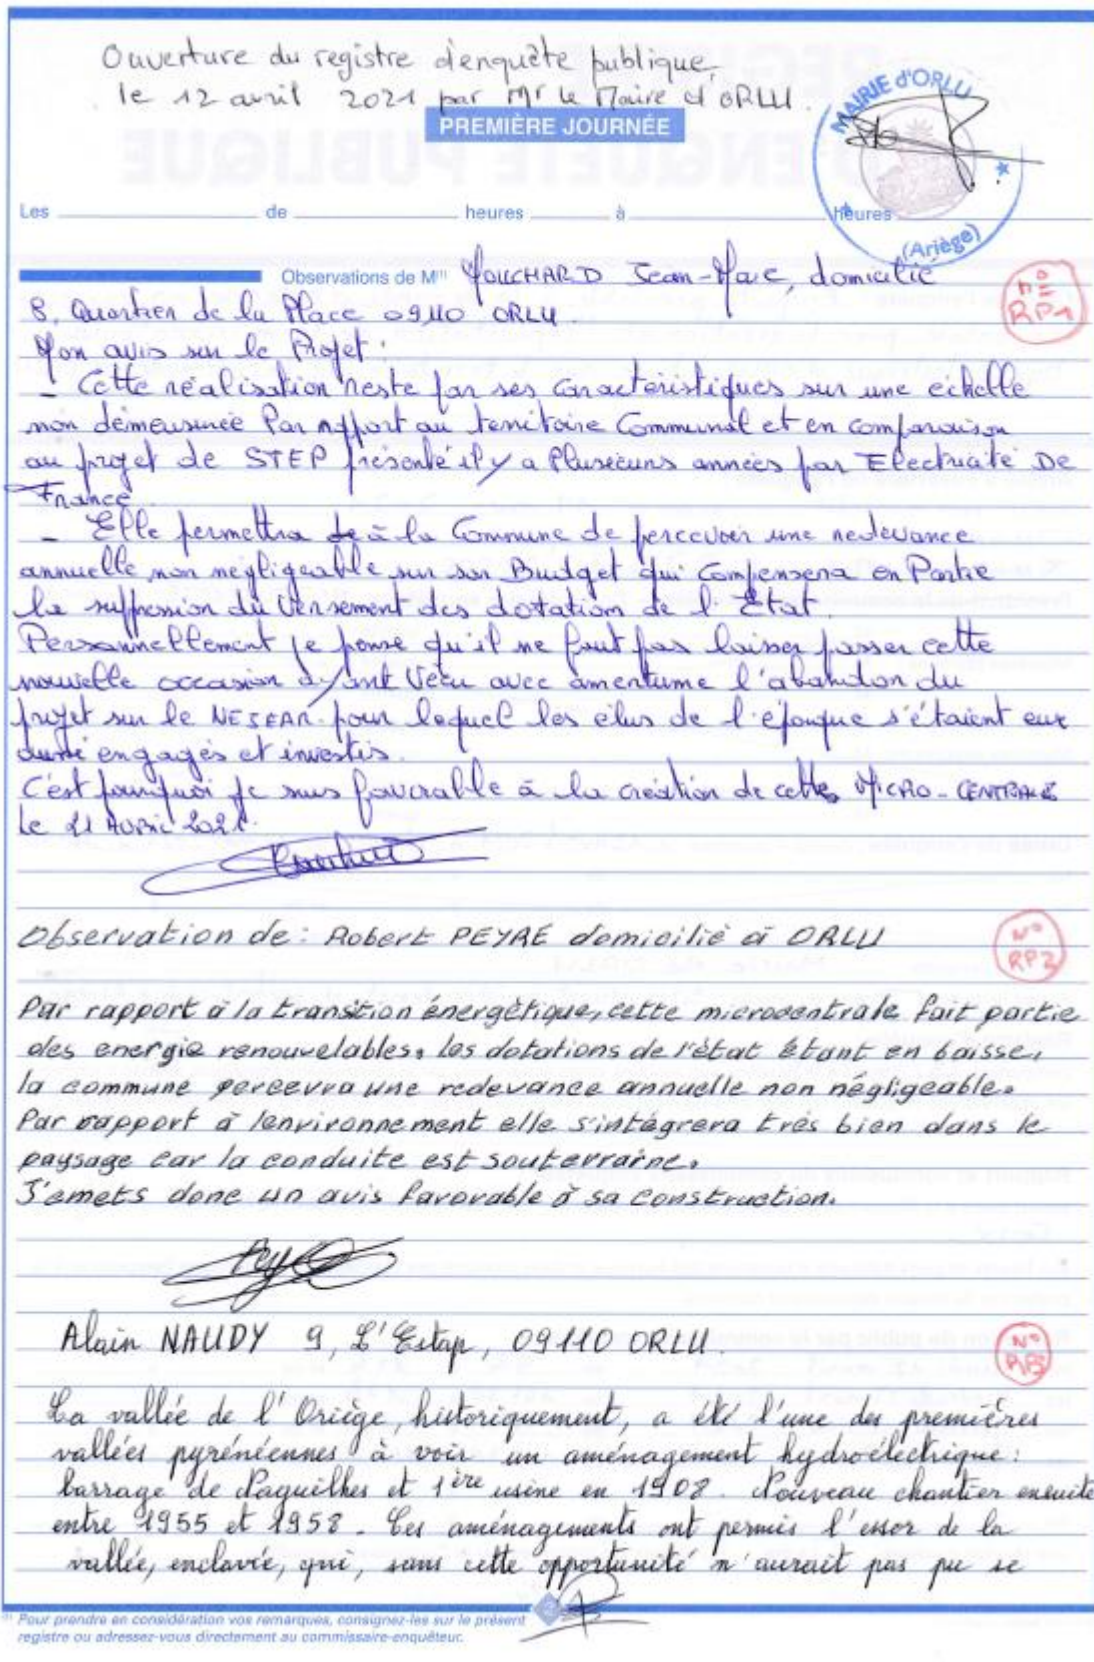 Ouverture du registre d'enquête publique,
le 12 avril 2021 par Mr le Maire d'ORLU.
MAIRIE d'ORLU
(Ariège)
PREMIÈRE JOURNÉE
Les de heures à heures
Observations de M(1) Jean-Marc, domicilié
N° RP1
8, Quartier de la Place 09110 ORLU.
Mon avis sur le Projet :
- Cette réalisation reste par ses caractéristiques sur une échelle
non démeusurée Par rapport au territoire Communal et en comparaison
au projet de STEP présenté il y a Plusieurs années par Electricité De
France.
- Elle permettra à la Commune de percevoir une redevance
annuelle non négligeable sur son Budget qui Compensera en Partie
la suppression du Versement des dotation de l'Etat.
Personnellement je pense qu'il ne faut pas laisser passer cette
nouvelle occasion ayant Vécu avec amertume l'abandon du
projet sur le pour lequel les élus de l'époque s'étaient eux
aussi engagés et investis.
C'est pourquoi je suis favorable à la création de cette MICRO-CENTRALE
Le 21 Avril 2021.
Observation de : Robert PEYRE domicilié à ORLU
N° RP2
Par rapport à la transition énergétique, cette microcentrale fait partie
des energie renouvelables. les dotations de l'état étant en baisse,
la commune percevra une redevance annuelle non négligeable.
Par rapport à lenvironnement elle s'intégrera très bien dans le
paysage car la conduite est souterraine.
J'emets donc un avis favorable à sa construction.
Alain NAUDY 9, L'Estap, 09110 ORLU.
N° RP3
La vallée de l'Oriège, historiquement, a été l'une des premières
vallées pyrénéennes à voir un aménagement hydroélectrique :
barrage de Naguilhes et 1ère usine en 1908. Nouveau chantier ensuite
entre 1955 et 1958. Ces aménagements ont permis l'essor de la
vallée, enclavée, qui, sans cette opportunité n'aurait pas pu se
(1) Pour prendre en considération vos remarques, consignez-les sur le présent
registre ou adressez-vous directement au commissaire-enquêteur.